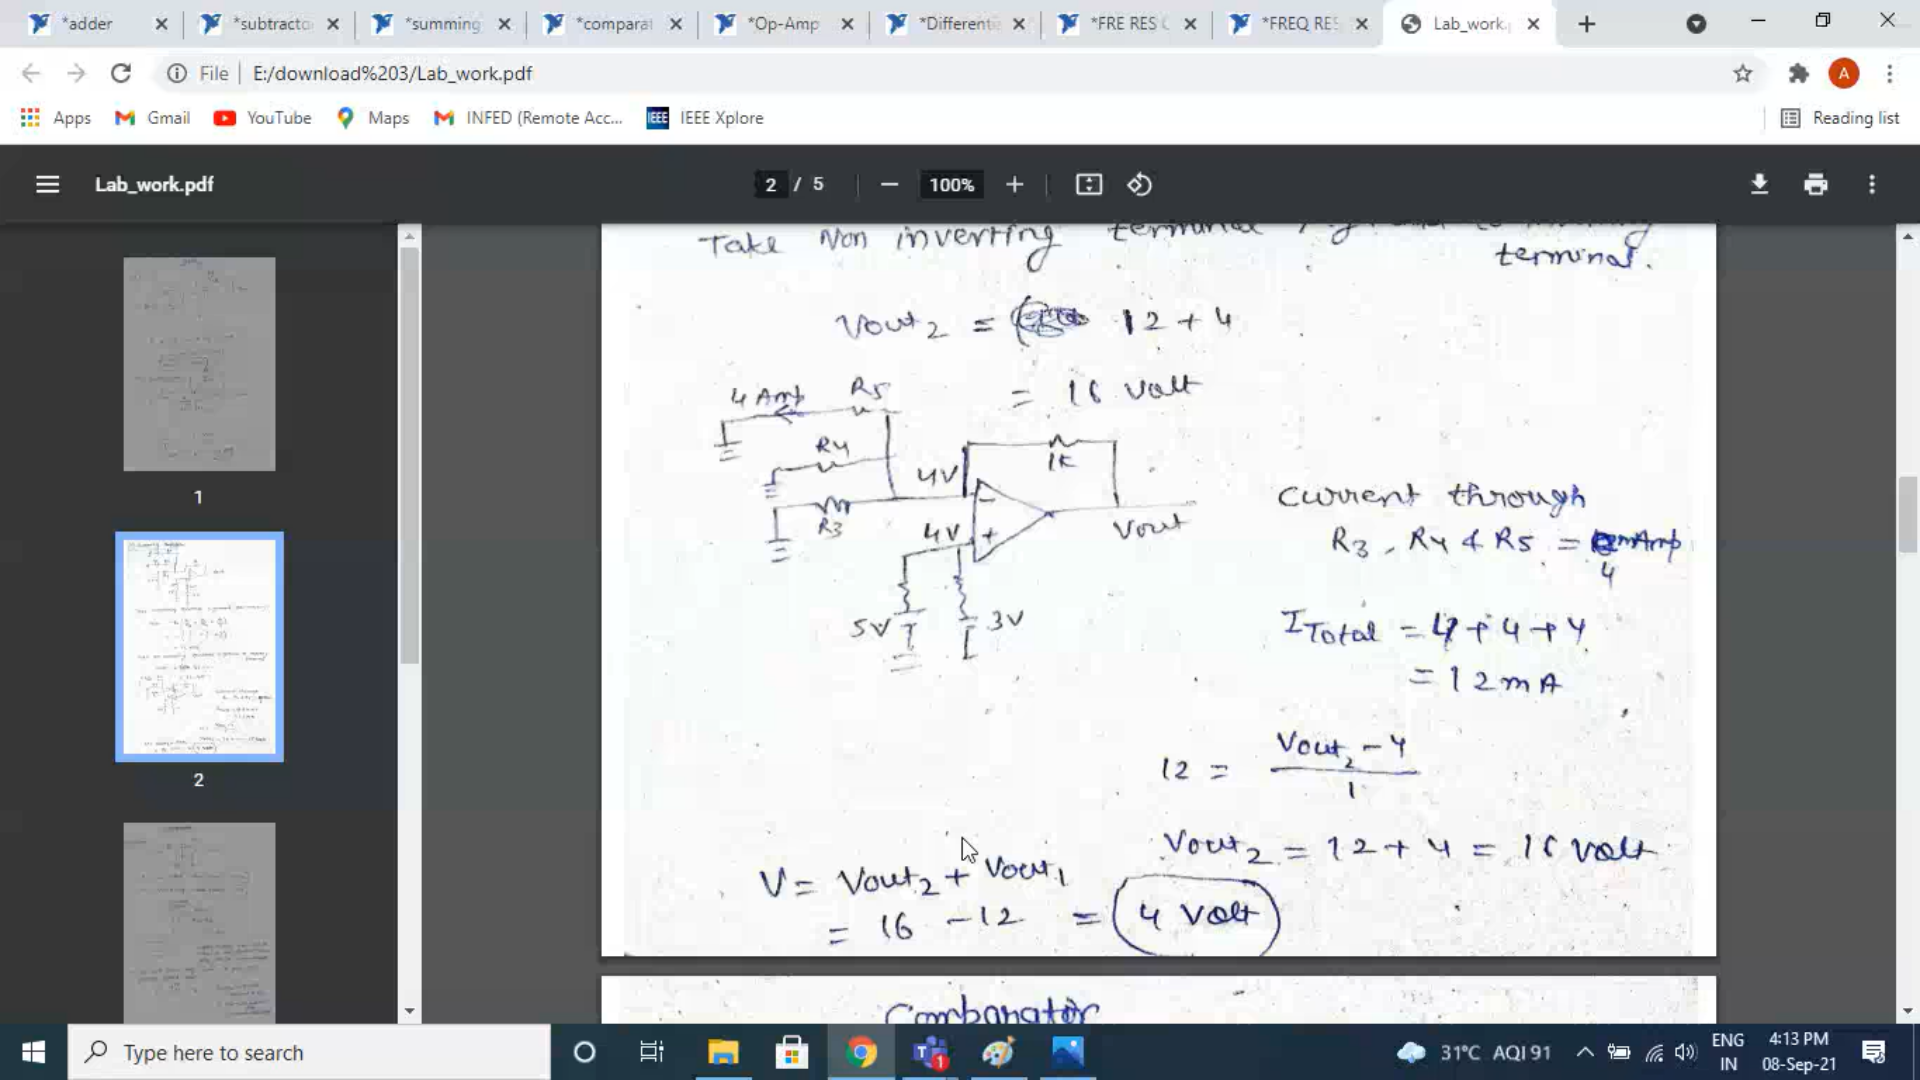 *adder
*subtracto
*summing
*comparat
*Op-Amp
*Differente
*FRE RES C
*FREQ RES
Lab_work.
File E:/download%203/Lab_work.pdf
A
Apps Gmail YouTube Maps INFED (Remote Acc... IEEE IEEE Xplore Reading list
Lab_work.pdf 2 / 5 100%
1
2
Take Non inverting terminal
terminal.
Vout2 = 12 + 4
= 16 Volt
4 Amp R5
R4
R3
4V
4V
1K
Vout
5V
3V
Current through
R3, R4 & R5 = mAmp
4
ITotal = 4 + 4 + 4
= 12 mA
12 = Vout2 - 4
1
Vout2 = 12 + 4 = 16 Volt
V = Vout2 + Vout1
= 16 - 12 = 4 Volt
Comparator
Type here to search
1
31°C AQI 91
ENG
IN
4:13 PM
08-Sep-21